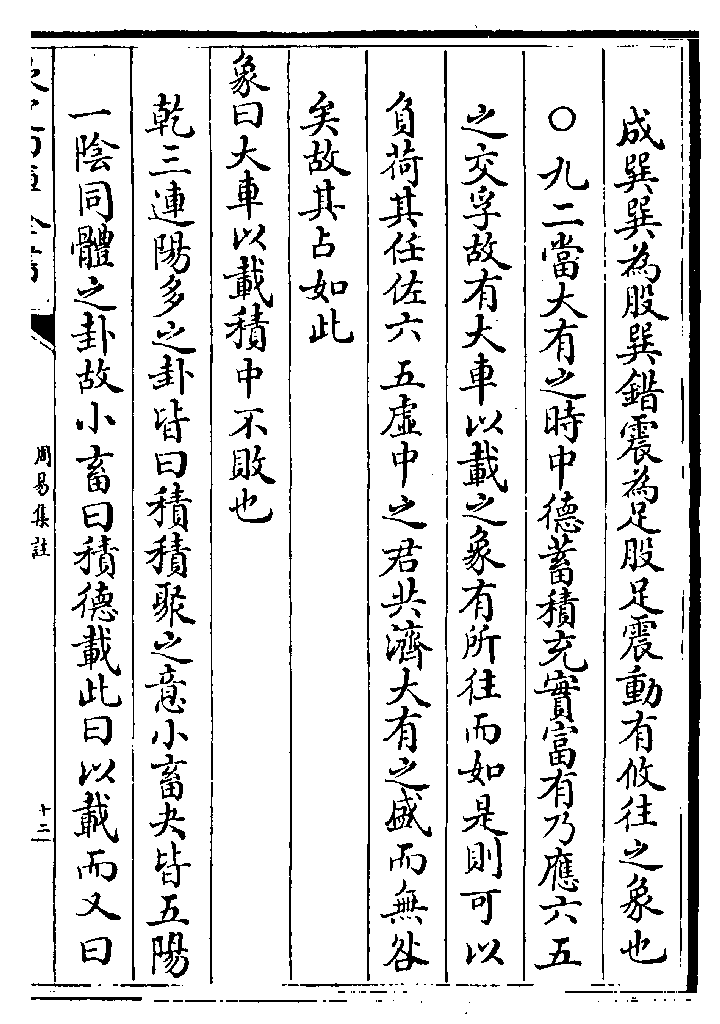 成巽巽為股巽錯震為足股足震動有攸往之象也
○九二當大有之時中德蓄積充實富有乃應六五
之交孚故有大車以載之象有所往而如是則可以
負荷其任佐六五虛中之君共濟大有之盛而無咎
矣故其占如此
象曰大車以載積中不敗也
乾三連陽多之卦皆曰積積聚之意小畜夬皆五陽
一陰同體之卦故小畜曰積德載此曰以載而又曰
周易集註
十二